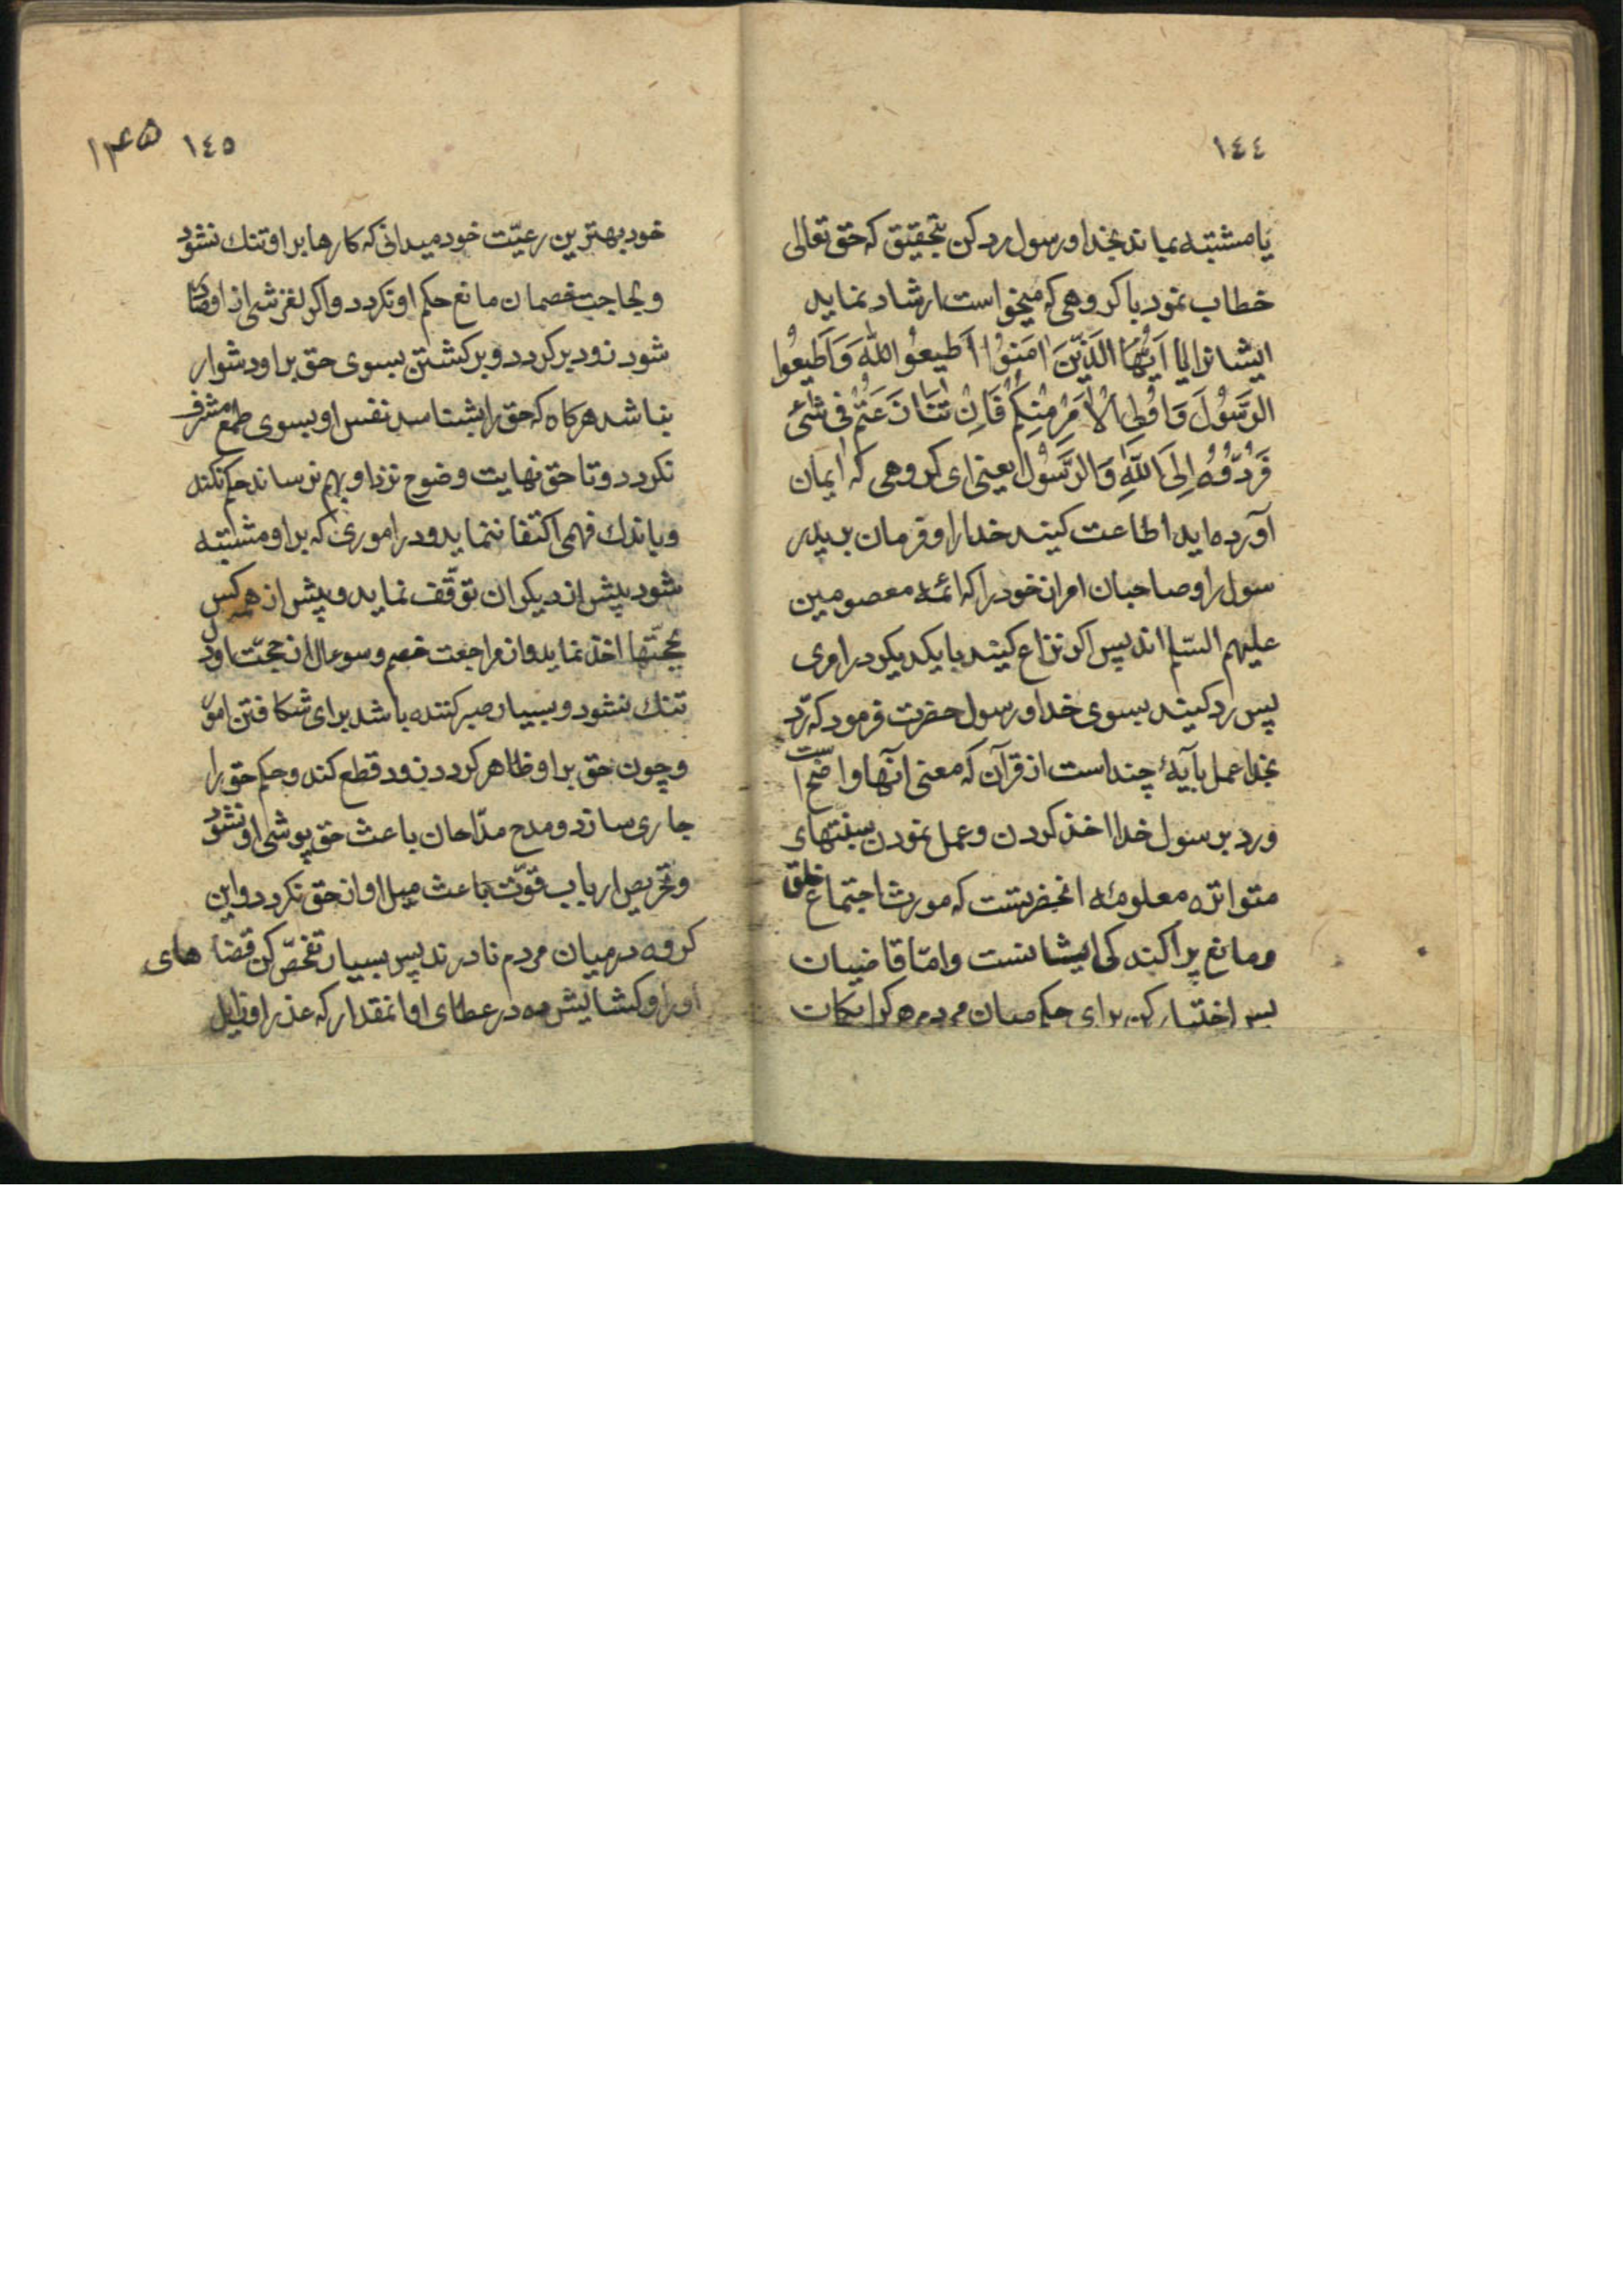 ١٤٤
یا مشتبه بماند بخدا و رسول رد کن بتحقیق که حق تعالی
خطاب نمود با کروهی که میخواست ارشاد نماید
ایشانرا یا اَیُّهَا الَّذینَ اٰمَنوُا اَطیعوُا اللّٰهَ وَ اَطیعُوا
الرَّسُولَ وَ اوُلِی الْاَمْرِ مِنْکُمْ فَاِنْ تَنٰازَعْتُمْ فی شَیْءٍ
فَرُدُّوُهُ اِلَی اللّٰهِ وَ الرَّسُولِ یعنی ای کروهی که ایمان
آورده اید اطاعت کنید خدا را و فرمان برید ر
سول را و صاحبان امر از خود را که ائمه معصومین
علیهم السّلم اند پس اکر نزاع کنید با یکدیکر در امری
پس رد کنید بسوی خدا و رسول حضرت فرمود که ردّ
بخدا عمل بآیهٔ چند است از قرآن که معنی آنها واضح است
و رد برسول خدا اخذ کردن و عمل نمودن بسنتهای
متواتره معلومهٔ انحضرتست که مورث اجتماع خلق
و مانع پراکندکی ایشانست و امّا قاضیان
پس اختیار کن برای حکم میان مردم هر کرا بکات
١٤٥ ۱۴۵
خود بهترین رعیّت خود میدانی که کارها بر او تنك نشود
و لجاجت خصمان مانع حکم او نکردد و اکر لغزشی از او صادر
شود زود برکردد و برکشتن بسوی حق بر او دشوار
نباشد هرکاه که حق را بشناسد نفس او بسوی طمع مشرف
نکردد و تا حق نهایت وضوح نزد او بهم نرساند حکم نکند
و باندك فهمی اکتفا ننماید و در اموری که بر او مشتبه
شود پیش از دیکران توقّف نماید و پیش از همه کس
بحجّتها اخذ نماید و از مراجعت خصم و سوءال از حجّت او دل
تنك نشود و بسیار صبر کننده باشد برای شکافتن امور
و چون حق بر او ظاهر کردد زود قطع کند و حکم حق را
جاری سازد و مدح مدّاحان باعث حق پوشی او نشود
و تحریص ارباب قوّت باعث میل او از حق نکردد و این
کروه در میان مردم نادرند پس بسیار تفحّص کن قضا های
او را و کشایش ده در عطای او انمقدار که عذر او زایل